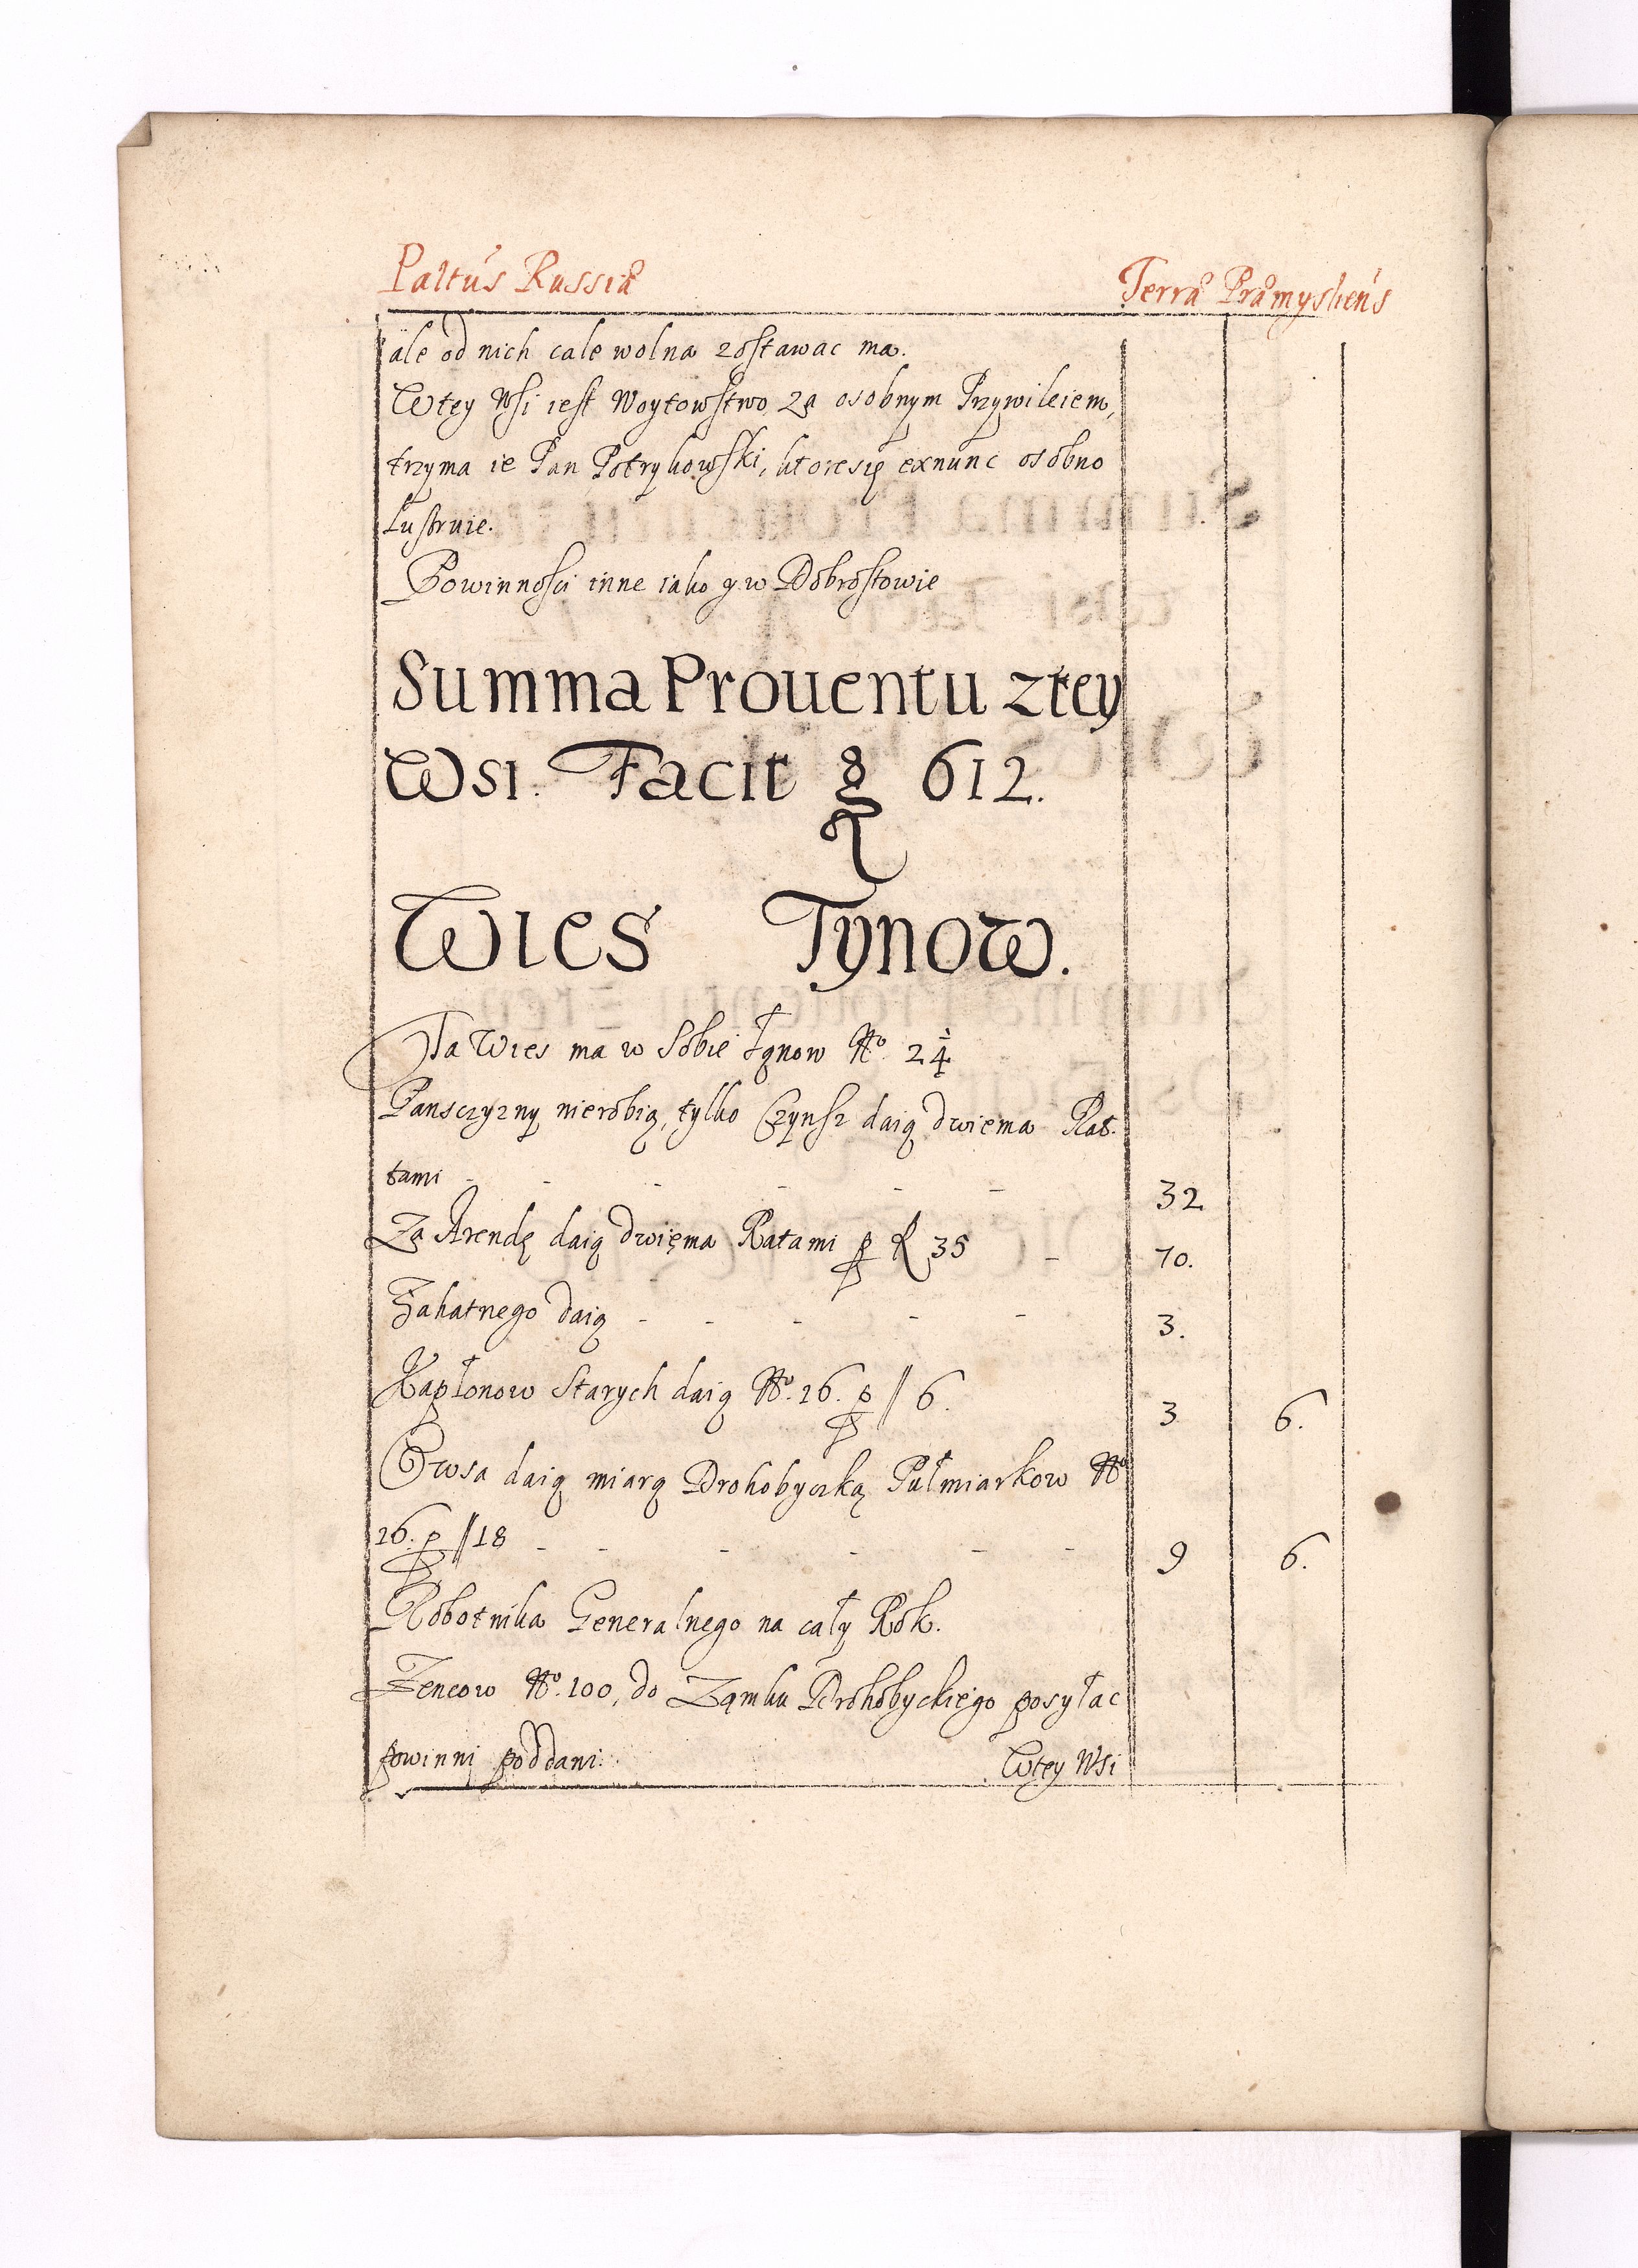 Paltus Russiæ Terra Præmysliens
ale od nich cale wolna zostawac ma.
Wtey Wsi iest Woytowstwo, za osobnym Przywileiem,
trzyma ie Pan Potrykowski, ktore się exnunc osobno
Lustruie.
Powinnosci inne iako y w Dobrostowie
Summa Prouentu ztey
Wsi. Facit 612.
Wies Tynow.
Ta Wies ma w Sobie Łanow No. 24
Pansczyzny nierobią, tylko Czynsz daią dwiema Rat
tami - - - - - - 32
Za Arendę daią dwięma Ratami p fl 35 - 70.
Zakatnego daią - - - - - 3.
Kapłonow Starych daią No. 16. p // 6. 3 6.
Owsa daią miarą Drohobyczką Pułmiarkow No
16. p // 18 - - - - - - 9 6.
Robotnika Generalnego na cały Rok.
Zencow No. 100, do Zamku Drohobyckiego posyłac
powinni poddani.
Wtey Wsi